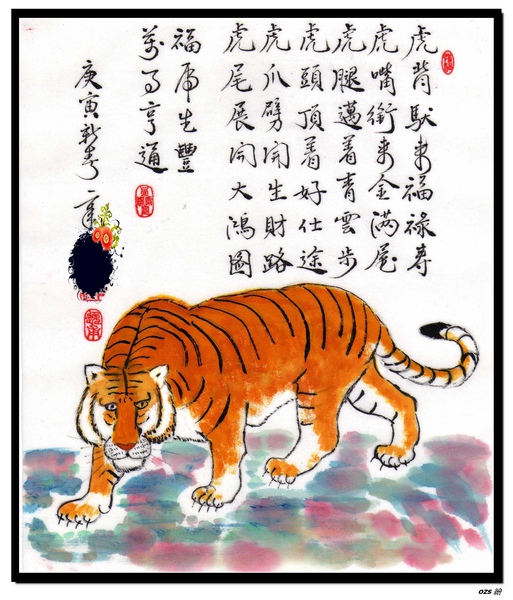 虎背馱來福祿壽
虎嘴銜來金滿屋
虎腿邁着青雲步
虎頭頂着好仕途
虎爪劈開生財路
虎尾展開大鴻圖
福虎生豐
萬事亨通
庚寅新春
ozs 繪